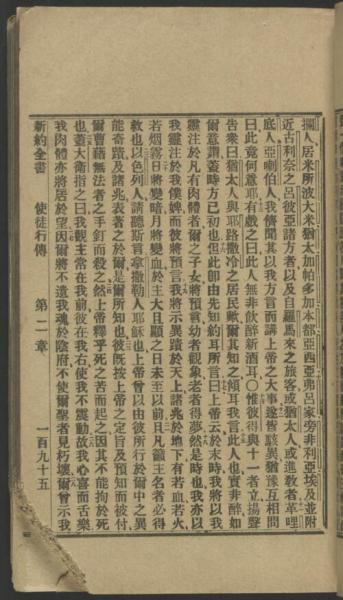 攔人居米所波大米猶太加帕多加本都亞西亞弗呂家旁非利亞埃及並附
近古利奈之呂彼亞諸方者以及自羅馬來之旅客或猶太人或進教者革哩
底人亞喇伯人我儕聞其以我方言而講上帝之大事遂皆駭異猶豫互相問
曰此竟何意耶有戲之曰此人無非飲醉新酒耳〇惟彼得與十一者立揚聲
告衆曰猶太人與耶路撒冷之居民歟爾其知之傾耳我言此人也實非醉如
爾意謂蓋時方巳初也但此卽由先知約耳所言曰上帝云於末時我將以我
靈注於凡有肉體者爾之子女將預言幼者觀象老者得夢然是時也我亦以
我靈注於我僕婢而彼將預言我將示異蹟於天上諸兆於地下有若血若火
若烟霧日將變暗月將變血於主大且顯之日未至以前且凡籲主名者必得
救也以色列人請聽斯言拿撒勒人耶穌也上帝曾以由彼所行於爾中之異
能奇蹟及諸兆表著之於爾是爾所知也彼旣按上帝之定旨及預知而被付
爾曹藉無法者之手釘而殺之然上帝釋乎死之苦而起之因其不能拘於死
也蓋大衛指之曰我觀主常在我前彼在我右使我不震動故我心喜而舌樂
我肉體亦將居於望因爾將不遺我魂於陰府不使爾聖者見朽壞爾曾示我
新約全書 使徒行傳 第二章 一百九十五